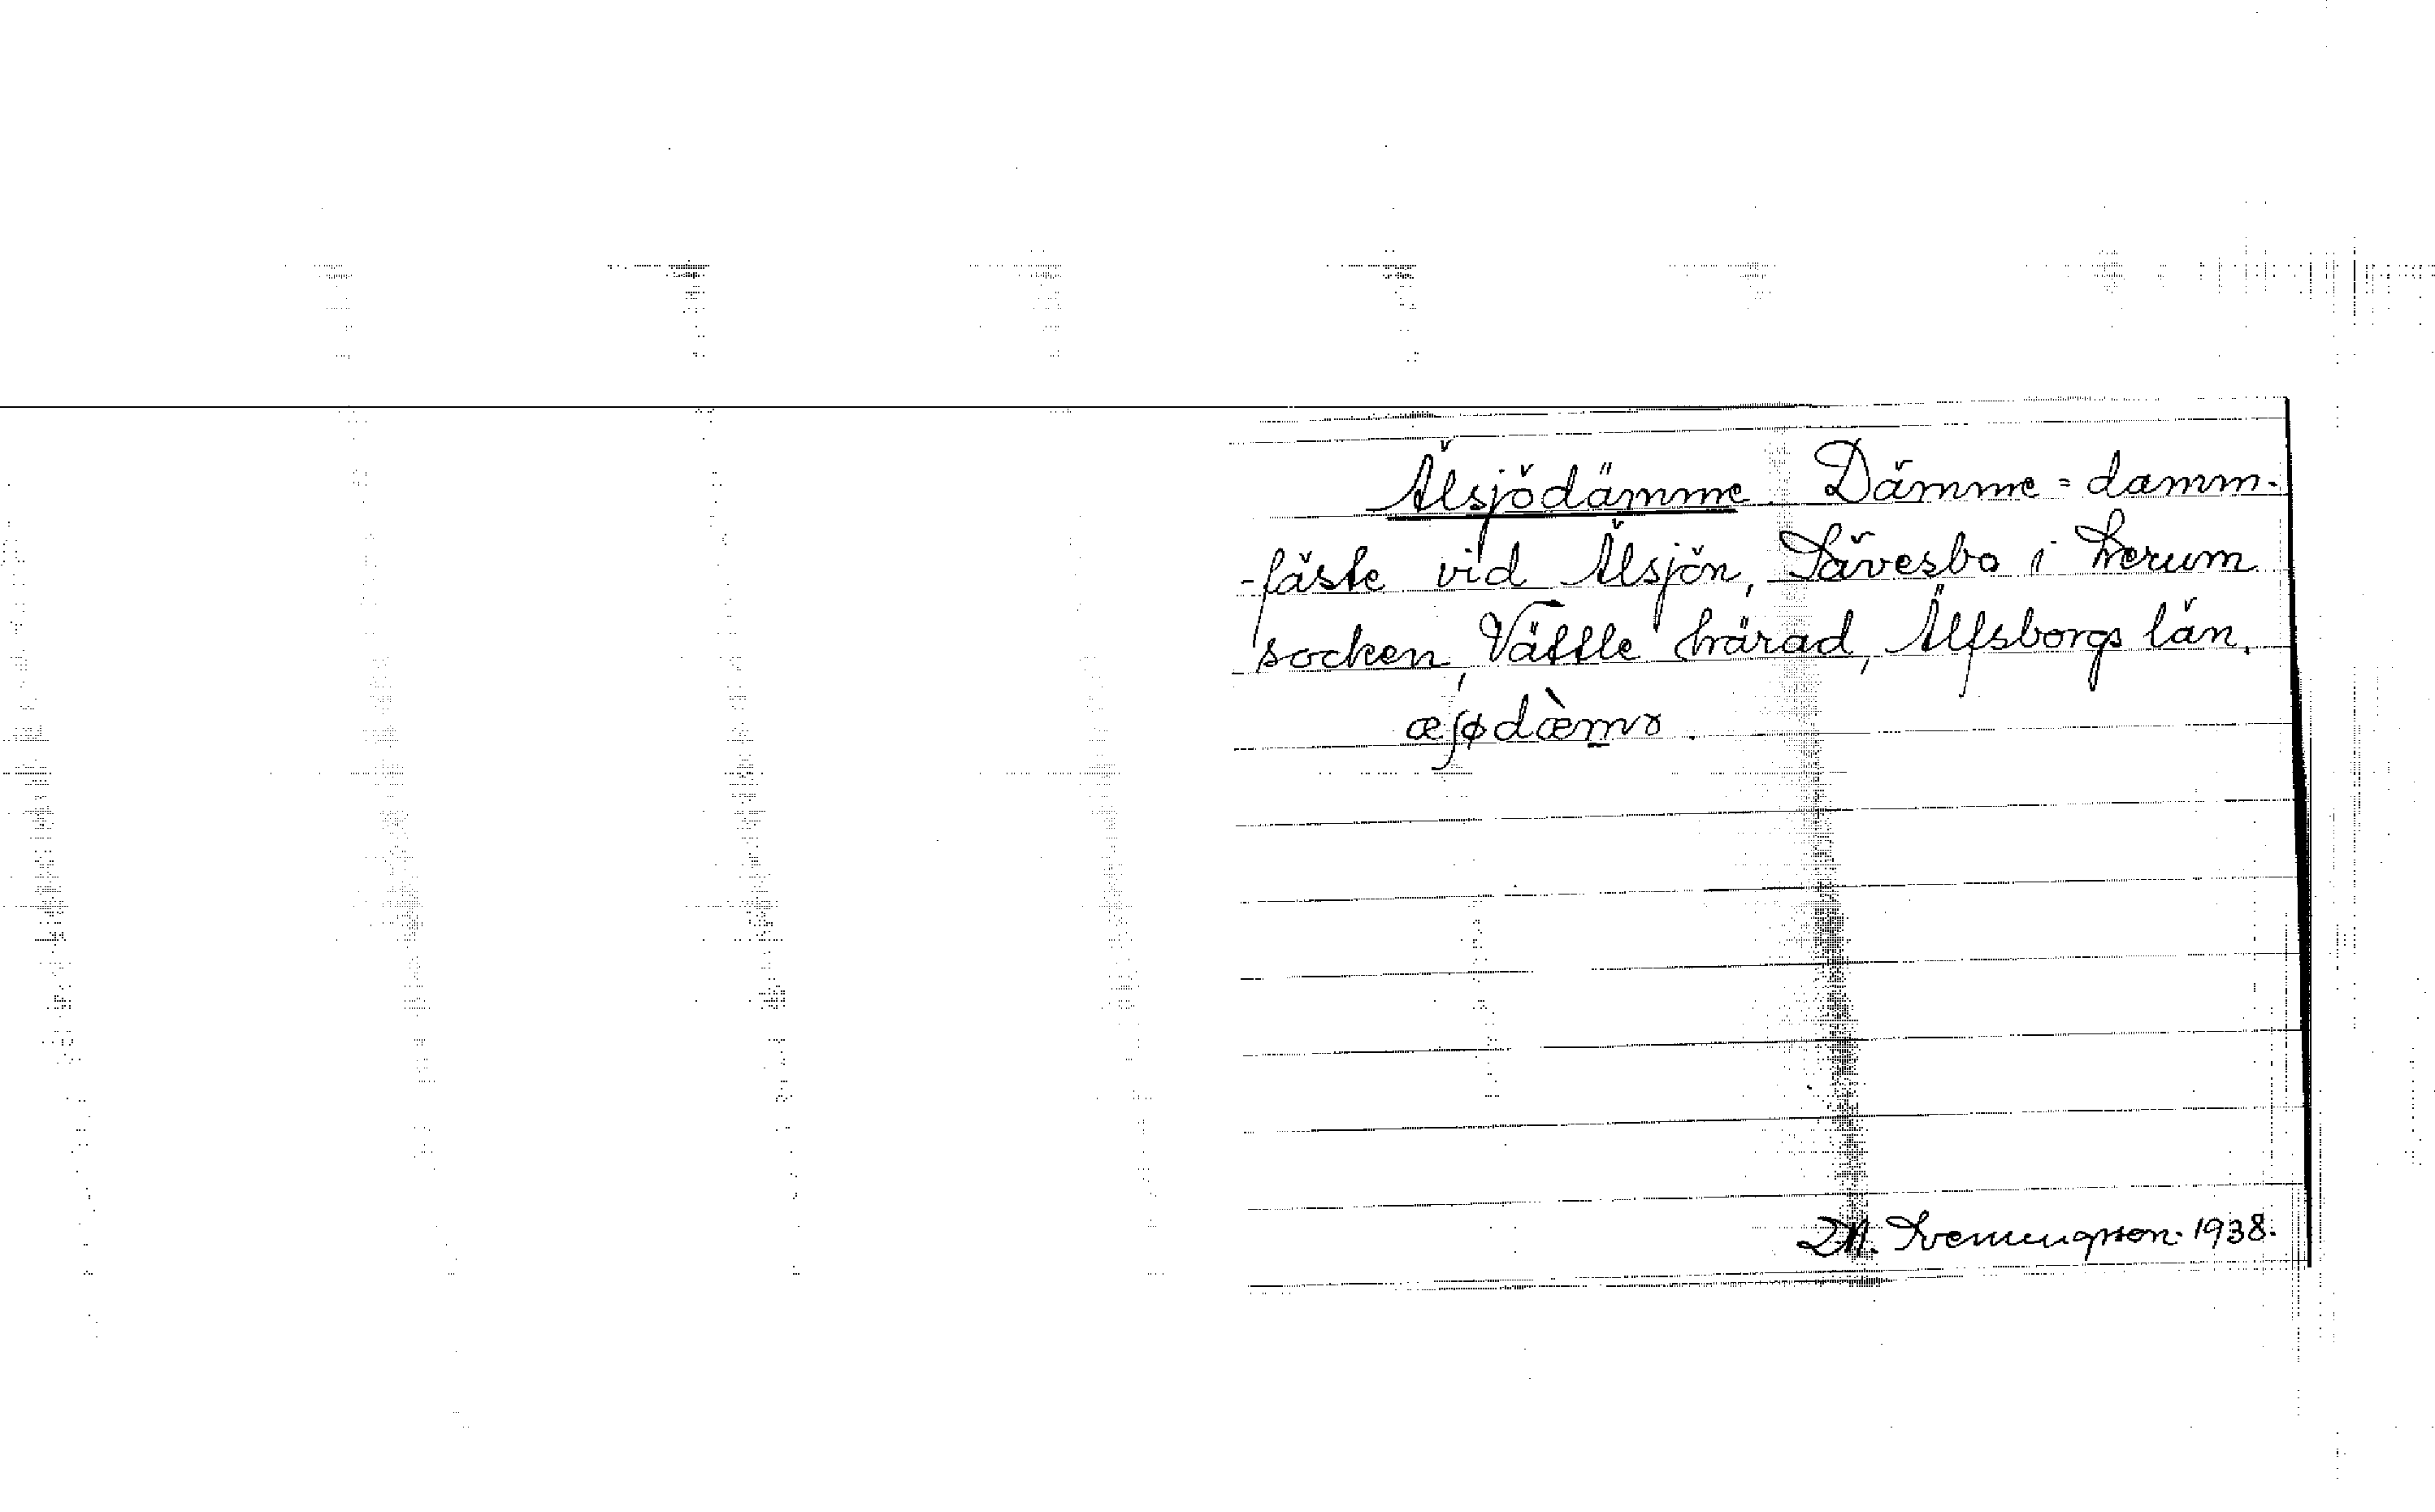 Älsjödämme. Dämme = damm-
-fäste vid Älsjön, Sävesbo i Lerum
socken, Vättle härad, Älfsborgs län.
æʃødæ̀mə.
1938.